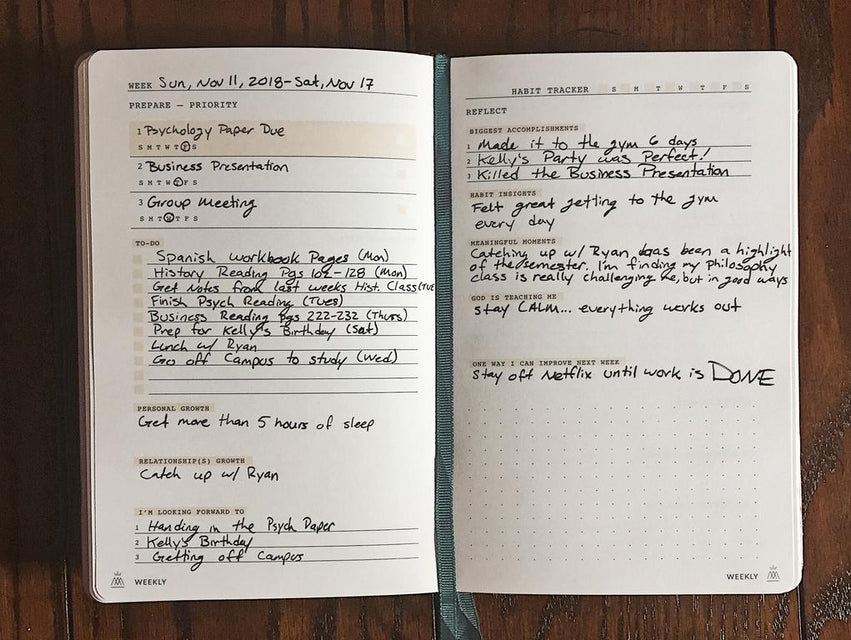 WEEK Sun, Nov 11, 2018-Sat, Nov 17
PREPARE – PRIORITY
1 Psychology Paper Due
S M T W T F S
2 Business Presentation
S M T W T F S
3 Group Meeting
S M T W T F S
TO-DO
Spanish workbook Pages (Mon)
History Reading Pgs 102-128 (Mon)
Get Notes from last weeks Hist. Class (TUE
Finish Psych Reading (Tues)
Business Reading pgs 222-232 (Thurs)
Prep for Kelly's Birthday (Sat)
Lunch w/ Ryan
Go off Campus to study (Wed)
PERSONAL GROWTH
Get more than 5 hours of sleep
RELATIONSHIP(S) GROWTH
Catch up w/ Ryan
I'M LOOKING FORWARD TO
1 Handing in the Psych Paper
2 Kelly's Birthday
3 Getting off Campus
WEEKLY
HABIT TRACKER S M T W T F S
REFLECT
BIGGEST ACCOMPLISHMENTS
1 Made it to the gym 6 days
2 Kelly's Party was Perfect!
3 Killed the Business Presentation
HABIT INSIGHTS
Felt great getting to the gym
every day
MEANINGFUL MOMENTS
Catching up w/ Ryan has been a highlight
of the semester. I'm finding my Philosophy
class is really challenging me, but in good ways
GOD IS TEACHING ME
stay CALM... everything works out
ONE WAY I CAN IMPROVE NEXT WEEK
Stay off Netflix until work is DONE
WEEKLY